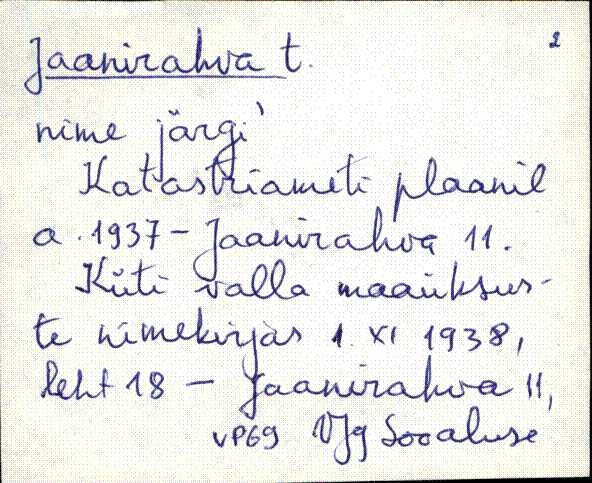 2
Jaanirahva t.
nime järgi'
Katastriameti plaanil
a. 1937 - Jaanirahva 11.
Küti valla maaüksus-
te nimekirjas 1. XI 1938,
leht 18 - Jaanirahva 11,
VP69 VJg Sooaluse